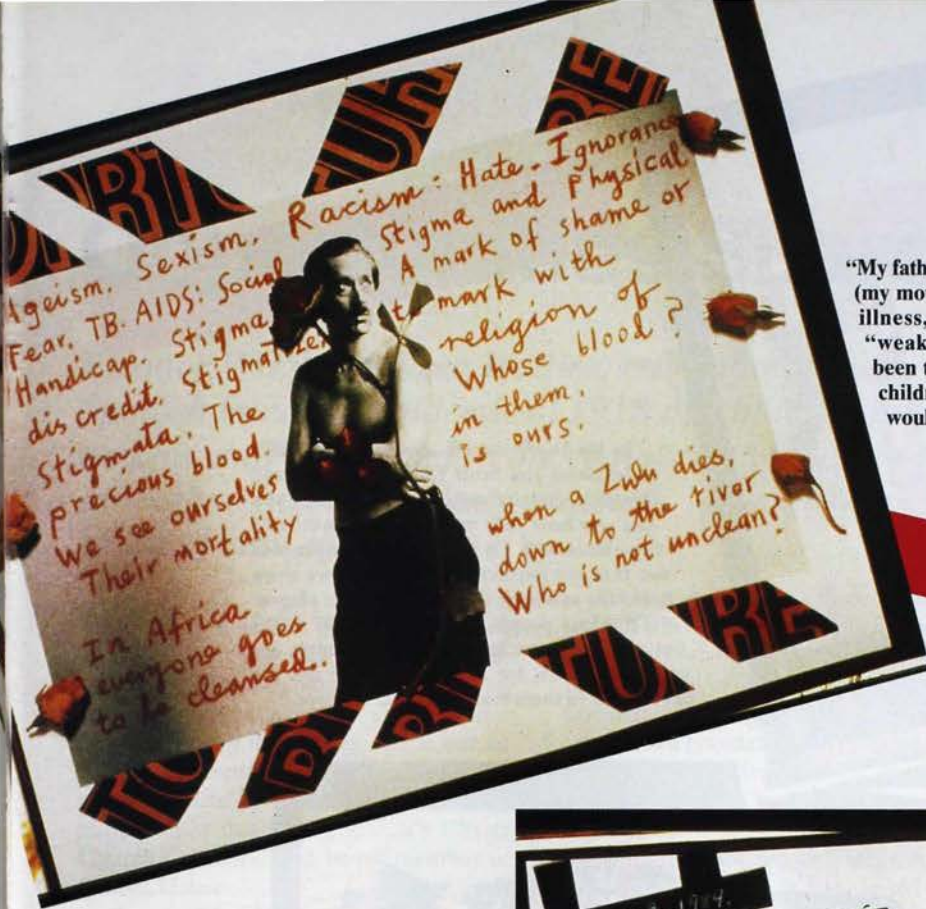 TURE
Ageism. Sexism. Racism: Hate. Ignorance
Fear. TB. AIDS: Social Stigma and Physical
Handicap. Stigma A mark of shame or
dis credit. Stigmatize: to mark with
Stigmata. The religion of
precious blood. Whose blood?
We see ourselves in them.
Their mortality is ours.
In Africa when a Zulu dies,
everyone goes down to the river
to be cleansed. Who is not unclean?
TO R TU RE
"My fath
(my mo
illness,
"weak
been t
child
woul
1984.